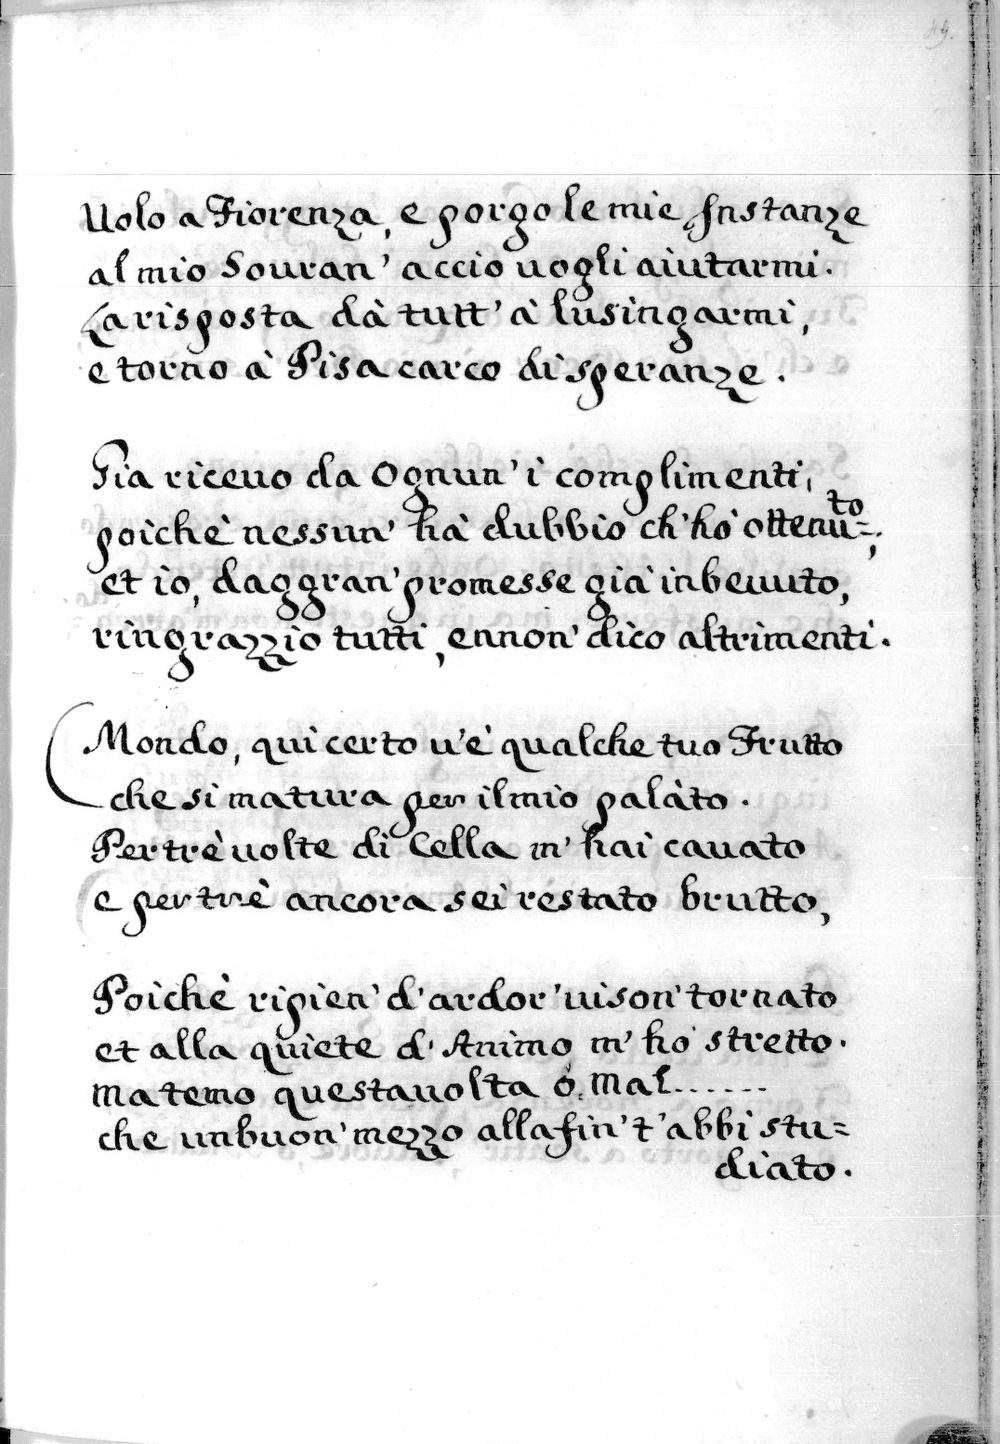 49.
Uolo a Fiorenza, e porgo le mie Instanze
al mio Souran' accio uogli aiutarmi.
La risposta dà tutt' à lusingarmi,
e torno à Pisa carco di speranze.
Gia riceuo da Ognun' i complimenti,
poichè nessun' hà dubbio ch' hò ottenu=to;
et io, daggran' promesse già inbeuuto,
ringrazzio tutti, ennon' dico altrimenti.
Mondo, qui certo u'è qualche tuo Frutto
che si matura per il mio palàto.
Per trè uolte di Cella m' hai cauato
e per trè ancora sei restato brutto,
Poichè ripien' d'ardor' ui son' tornato
et alla quiete d' Animo m' hò stretto.
Ma temo questa uolta ò Mal......
che un buon' mezzo alla fin' t' abbi stu=
diato.